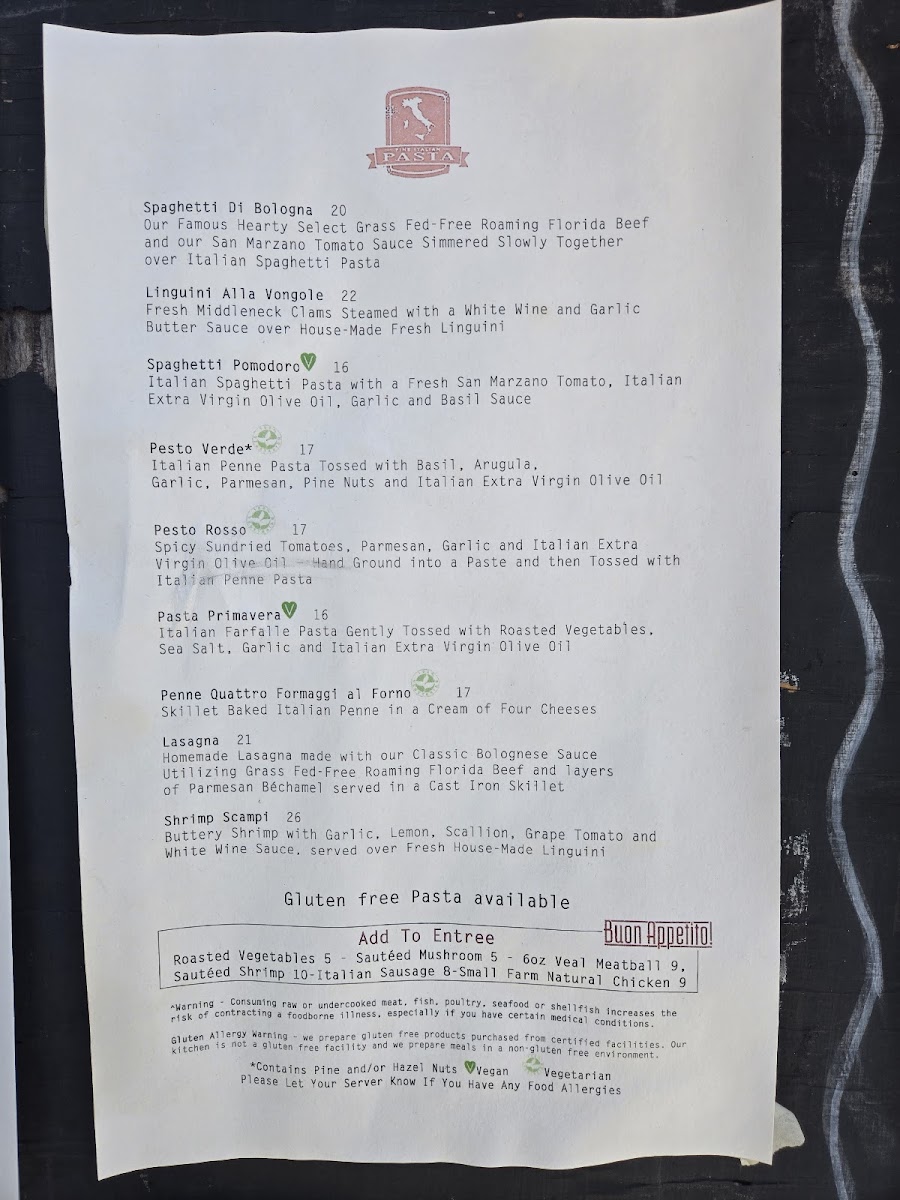 FINE ITALIAN
PASTA
Spaghetti Di Bologna 20
Our Famous Hearty Select Grass Fed-Free Roaming Florida Beef
and our San Marzano Tomato Sauce Simmered Slowly Together
over Italian Spaghetti Pasta
Linguini Alla Vongole 22
Fresh Middleneck Clams Steamed with a White Wine and Garlic
Butter Sauce over House-Made Fresh Linguini
Spaghetti Pomodoro V 16
Italian Spaghetti Pasta with a Fresh San Marzano Tomato, Italian
Extra Virgin Olive Oil, Garlic and Basil Sauce
Pesto Verde* 17
Italian Penne Pasta Tossed with Basil, Arugula,
Garlic, Parmesan, Pine Nuts and Italian Extra Virgin Olive Oil
Pesto Rosso 17
Spicy Sundried Tomatoes, Parmesan, Garlic and Italian Extra
Virgin Olive Oil - Hand Ground into a Paste and then Tossed with
Italian Penne Pasta
Pasta Primavera V 16
Italian Farfalle Pasta Gently Tossed with Roasted Vegetables,
Sea Salt, Garlic and Italian Extra Virgin Olive Oil
Penne Quattro Formaggi al Forno 17
Skillet Baked Italian Penne in a Cream of Four Cheeses
Lasagna 21
Homemade Lasagna made with our Classic Bolognese Sauce
Utilizing Grass Fed-Free Roaming Florida Beef and layers
of Parmesan Béchamel served in a Cast Iron Skillet
Shrimp Scampi 26
Buttery Shrimp with Garlic, Lemon, Scallion, Grape Tomato and
White Wine Sauce, served over Fresh House-Made Linguini
Gluten free Pasta available
Buon Appetito!
Add To Entree
Roasted Vegetables 5 - Sautéed Mushroom 5 - 6oz Veal Meatball 9,
Sautéed Shrimp 10-Italian Sausage 8-Small Farm Natural Chicken 9
^Warning - Consuming raw or undercooked meat, fish, poultry, seafood or shellfish increases the
risk of contracting a foodborne illness, especially if you have certain medical conditions.
Gluten Allergy Warning - we prepare gluten free products purchased from certified facilities. Our
kitchen is not a gluten free facility and we prepare meals in a non-gluten free environment.
*Contains Pine and/or Hazel Nuts V Vegan Vegetarian
Please Let Your Server Know If You Have Any Food Allergies